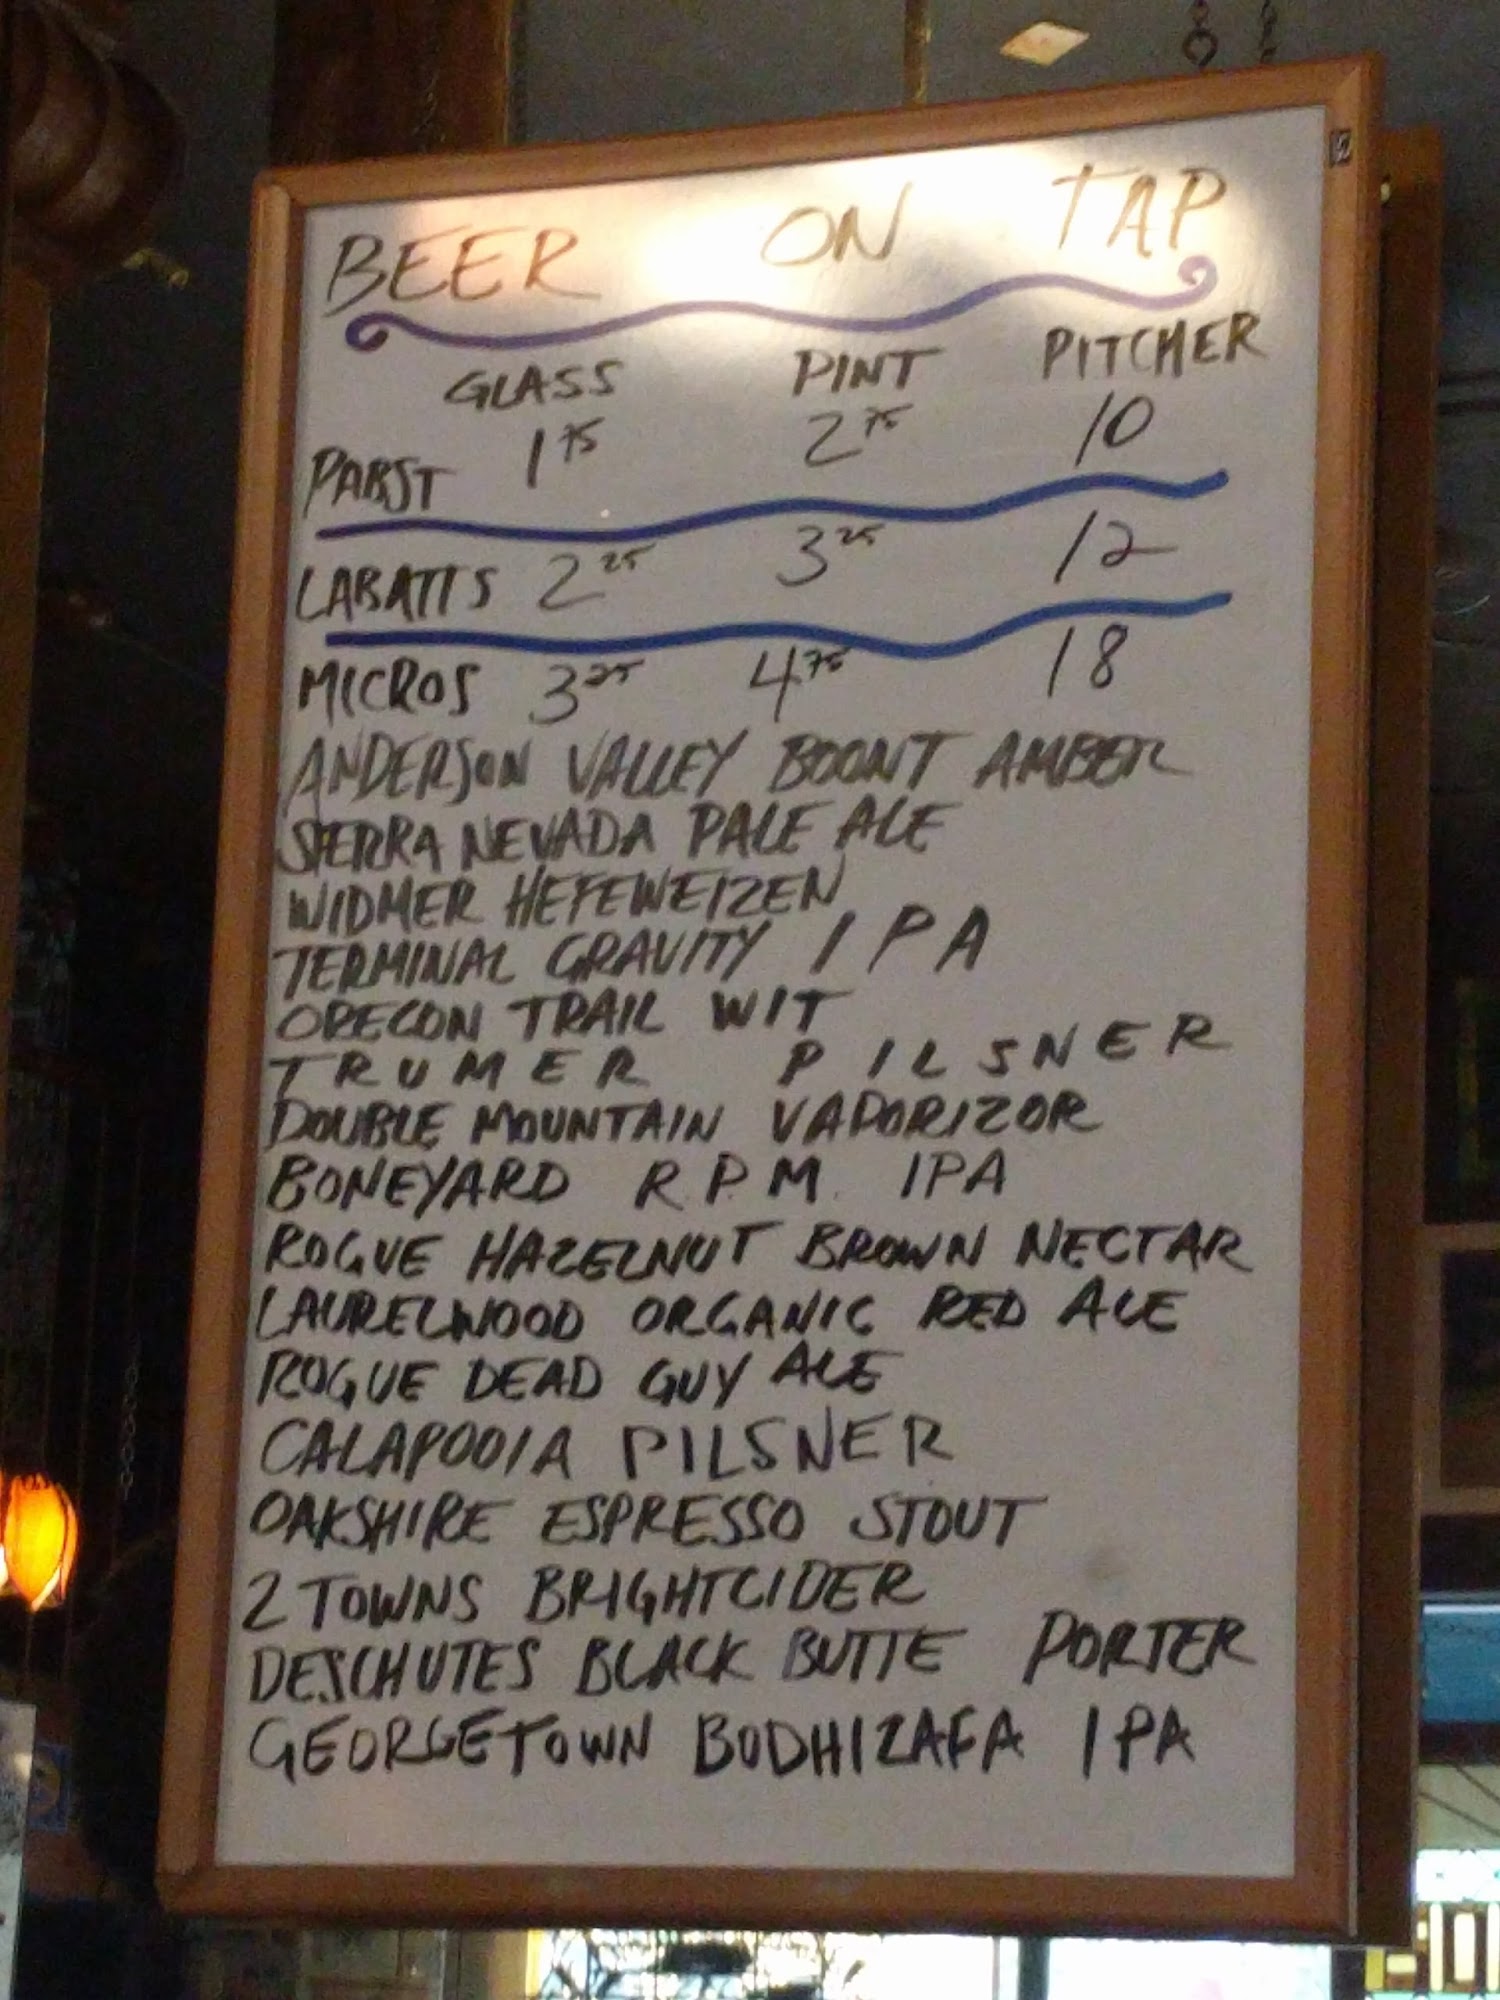 BEER ON TAP
GLASS PINT PITCHER
PABST 1 75 2 75 10
LABATTS 2 25 3 25 12
MICROS 3 25 4.75 18
ANDERSON VALLEY BOONT AMBER
SIERRA NEVADA PALE ALE
WIDMER HEFEWEIZEN
TERMINAL GRAVITY IPA
OREGON TRAIL WIT
TRUMER PILSNER
DOUBLE MOUNTAIN VAPORIZOR
BONEYARD R.P.M. IPA
ROGUE HAZELNUT BROWN NECTAR
LAURELWOOD ORGANIC RED ALE
ROGUE DEAD GUY ALE
CALAPOOIA PILSNER
OAKSHIRE ESPRESSO STOUT
2 TOWNS BRIGHTCIDER
DESCHUTES BLACK BUTTE PORTER
GEORGETOWN BODHIZAFA IPA